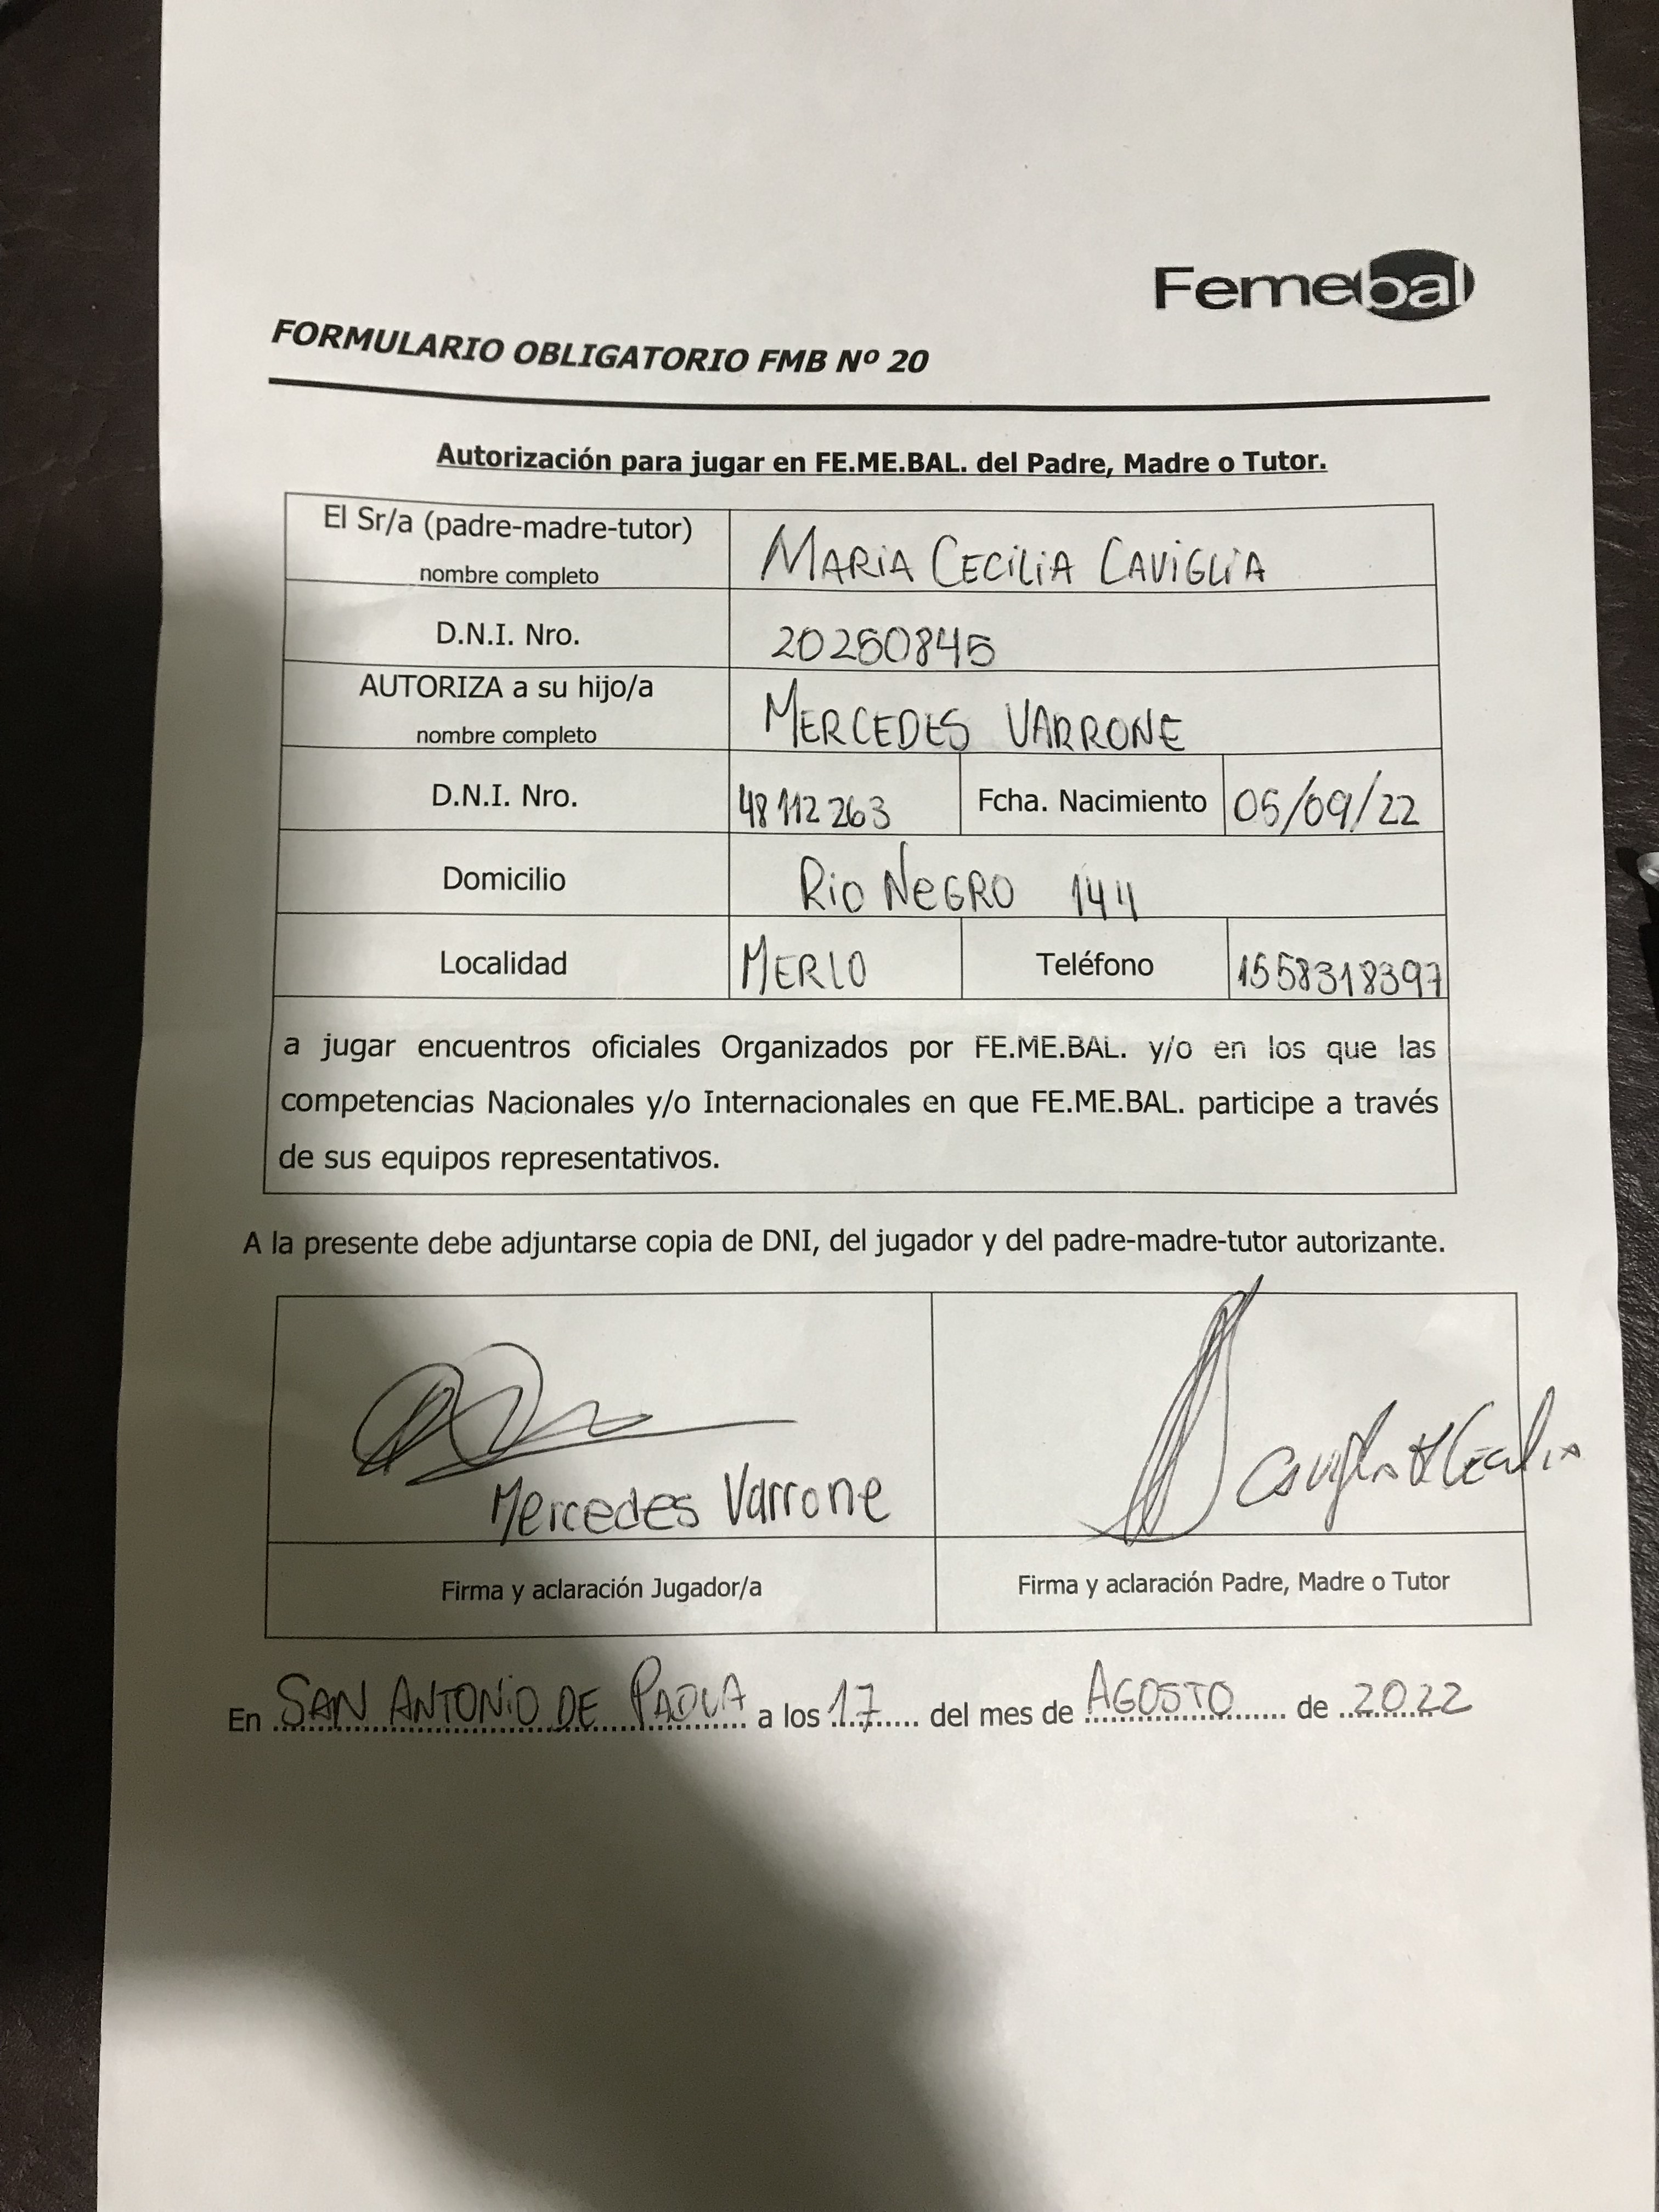 Femebal
FORMULARIO OBLIGATORIO FMB Nº 20
Autorización para jugar en FE.ME.BAL. del Padre, Madre o Tutor.
El Sr/a (padre-madre-tutor)
nombre completo
MARIA CECILIA CAVIGLIA
D.N.I. Nro.
20250845
AUTORIZA a su hijo/a
nombre completo
MERCEDES VARRONE
D.N.I. Nro.
48112263
Fcha. Nacimiento
05/09/22
Domicilio
RIO NEGRO 144
Localidad
MERLO
Teléfono
1558318397
a jugar encuentros oficiales Organizados por FE.ME.BAL. y/o en los que las
competencias Nacionales y/o Internacionales en que FE.ME.BAL. participe a través
de sus equipos representativos.
A la presente debe adjuntarse copia de DNI, del jugador y del padre-madre-tutor autorizante.
Mercedes Varrone
Firma y aclaración Jugador/a
Firma y aclaración Padre, Madre o Tutor
En SAN ANTONIO DE PADUA a los 17 del mes de AGOSTO de 2022